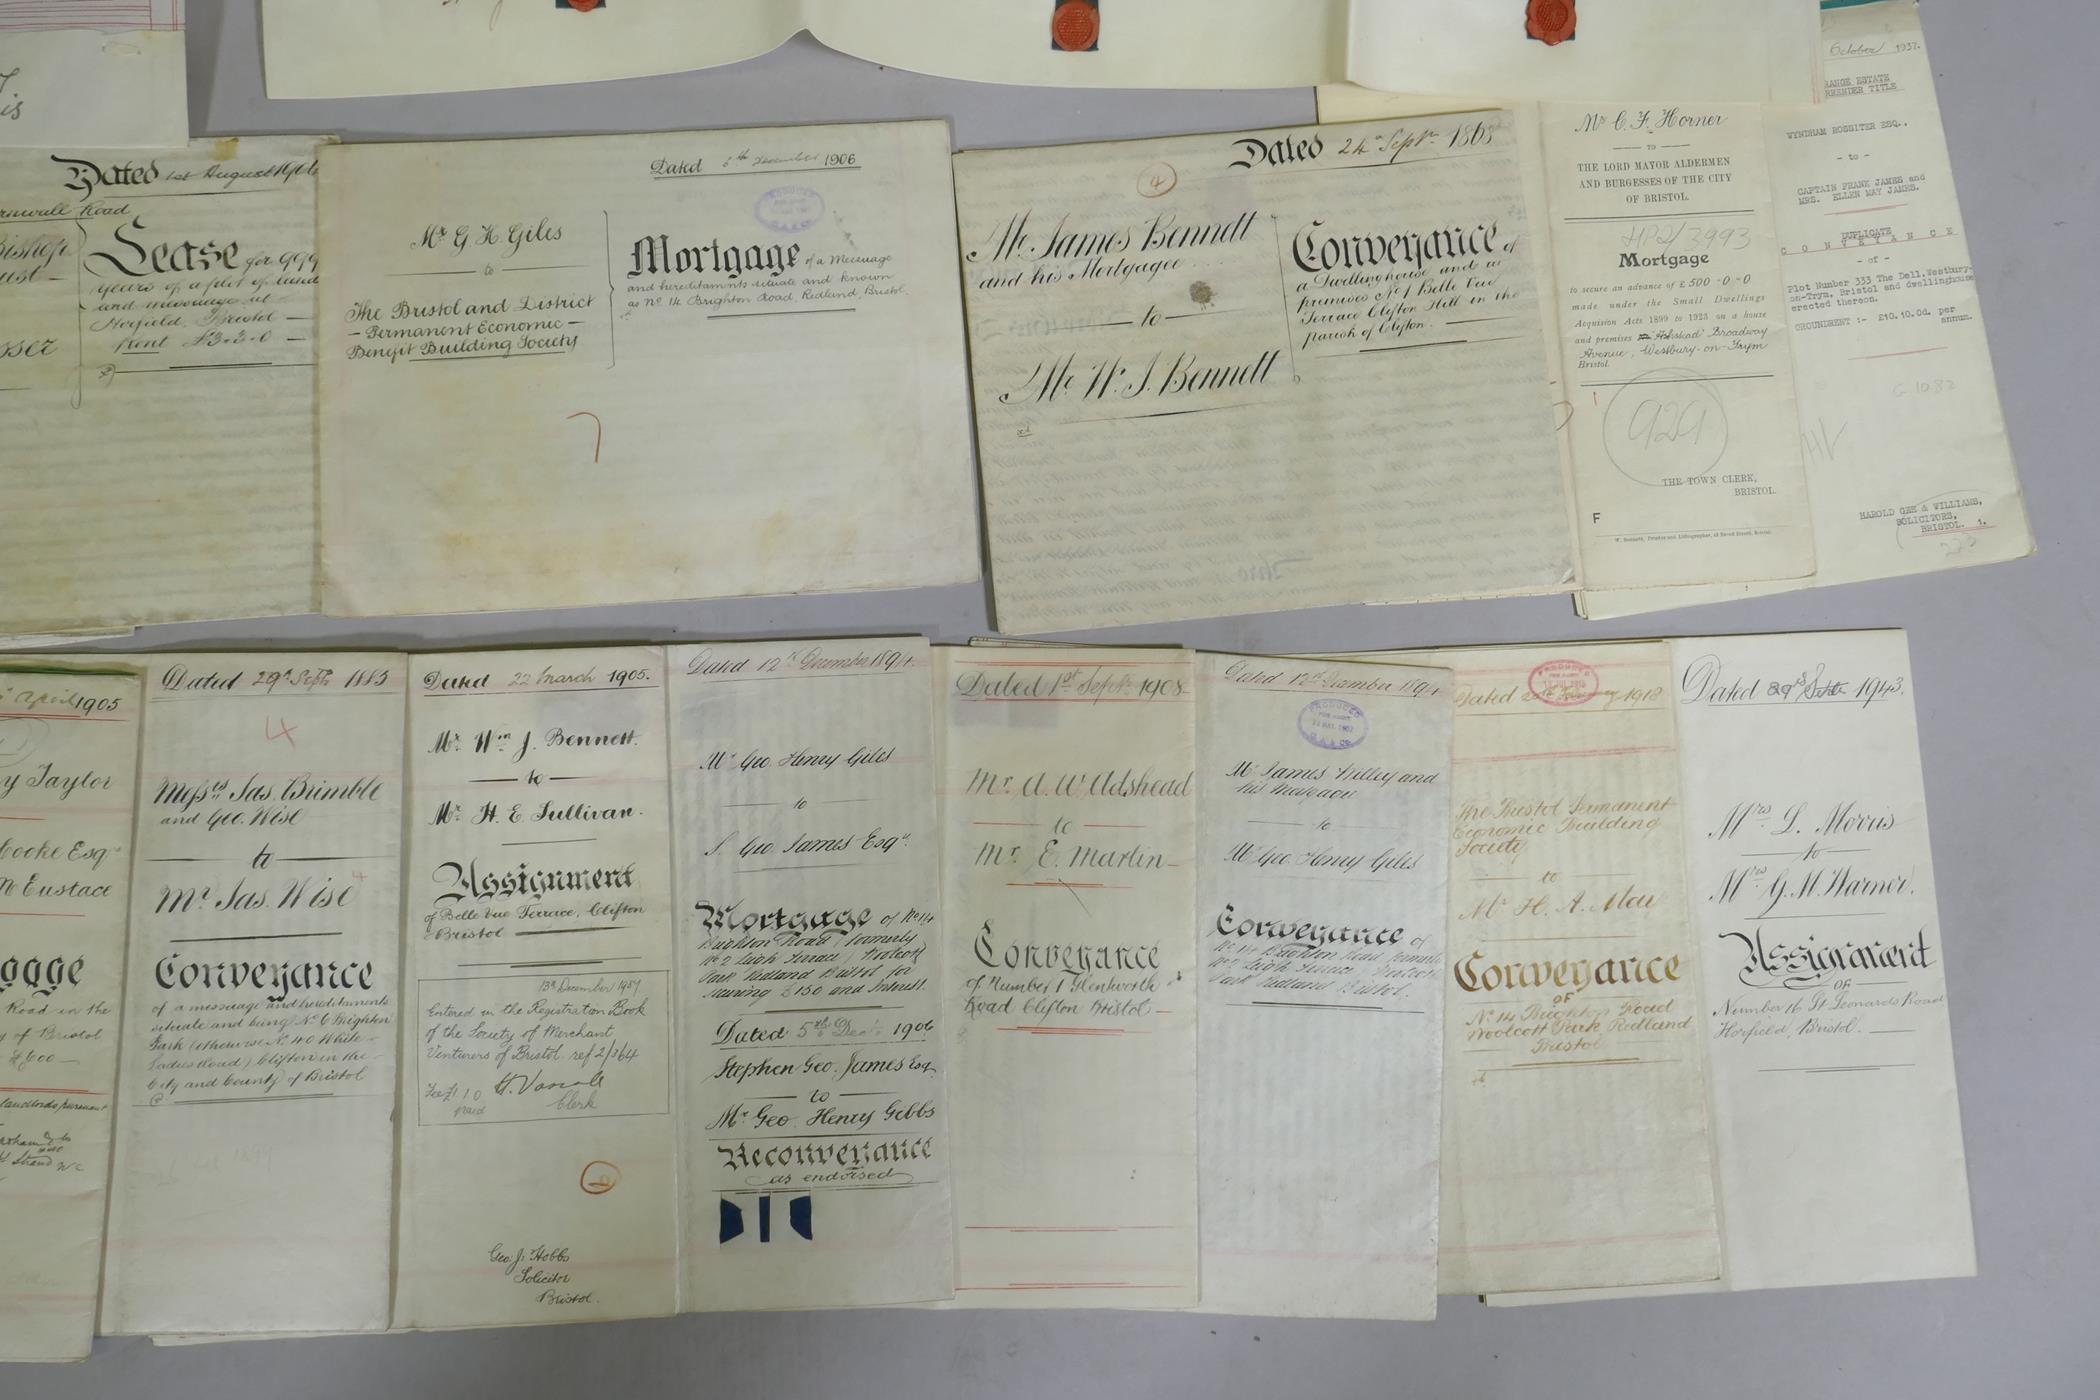 is
Dated 1st August
Road
Lease for 999
years of a plot of land
and messuage at
Horfield, Bristol —
Rent £3-3-0 —
Dated 6th December 1906
Mr. G H. Giles
to
The Bristol and District
— Permanent Economic —
Benefit Building Society
Mortgage of a Messuage
and hereditaments situate and known
as No. 14 Brighton Road, Redland, Bristol.
7
Dated 24th Septr. 1868
4
Mr. James Bennett
and his Mortgagee
— to —
Mr. W. J. Bennett
Conveyance of
a Dwellinghouse and
premises No. 1 Belle Vue
Terrace Clifton Hill in the
parish of Clifton.
Mr C. F. Horner
TO
THE LORD MAYOR ALDERMEN
AND BURGESSES OF THE CITY
OF BRISTOL.
HP2/3993
Mortgage
to secure an advance of £ 500-0-0
made under the Small Dwellings
Acquision Acts 1899 to 1923 on a house
and premises Broadway
Avenue, Westbury-on-Trym
Bristol.
929
THE TOWN CLERK,
BRISTOL.
F
October 1937.
RANGE ESTATE
RRENDER TITLE
WYNDHAM ROSSITER ESQ.,
- to -
CAPTAIN FRANK JAMES and
MRS. ELLEN MAY JAMES.
DUPLICATE
CONVEYANCE
- of -
Plot Number 333 The Dell, Westbury-
on-Trym, Bristol and dwellinghouse
erected thereon.
GROUNDRENT :- £10.10.0d. per
annum.
HAROLD GEE & WILLIAMS,
SOLICITORS,
BRISTOL. 1.
April 1905
y Taylor
Cooke Esqr
Eustace
gage
Road in the
y of Bristol
£600
Dated 29th Septr. 1883
4
Messrs. Jas. Brimble
and Geo. Wise
— to —
Mr. Jas. Wise
Conveyance
of a messuage and hereditaments
situate and being No. 6 Brighton
Park (otherwise No. 40 White-
Ladies Road) Clifton in the
City and County of Bristol
Dated 22 March 1905.
Mr. Wm. J. Bennett.
— to —
Mr. H. E. Sullivan.
Assignment
of Belle Vue Terrace, Clifton
Bristol
13th December 1957
Entered in the Registration Book
of the Society of Merchant
Venturers of Bristol. ref 2/364
Fee £1.1.0
paid
Clerk
Geo. J. Hobbs
Solicitor
Bristol.
Dated 12th December 1894.
Mr. Geo. Henry Giles
to
S. Geo. James Esqr.
Mortgage of No. 14
Brighton Road (formerly
No. 2 Leigh Terrace) Woolcott
Park Redland Bristol for
securing £150 and Interest.
Dated 5th Decr. 1906
Stephen Geo. James Esq.
— to —
Mr. Geo. Henry Gibbs
Reconveyance
as endorsed
Dated 1st Septr. 1908
Mr. A. W. Adshead
to
Mr. E. Martin
Conveyance
of Number 1 Glentworth
Road Clifton Bristol —
Dated 12th December 1894
PRODUCED
Mr. James Willey and
his Mortgagee
to
Mr. Geo. Henry Giles
Conveyance of
No. 14 Brighton Road formerly
No. 2 Leigh Terrace, Woolcott
Park Redland Bristol.
PRODUCED
Dated 1918
The Bristol Permanent
Economic Building
Society
to
Mr. H. A. May
Conveyance
OF
No. 14 Brighton Road
Woolcott Park Redland
Bristol
Dated 1943.
Mrs. L. Morris
— to —
Mrs. G. M. Warner.
Assignment
OF
Number 16 St. Leonards Road
Horfield, Bristol.